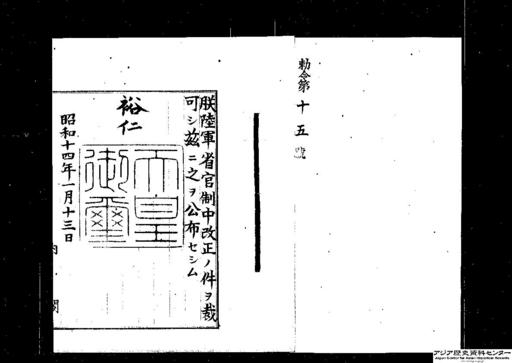 勅令第十五號
朕陸軍省官制中改正ノ件ヲ裁
可シ茲ニ之ヲ公布セシム
裕仁
天皇
御璽
昭和十四年一月十三日
内閣
アジア歴史資料センター
Japan Center for Asian Historical Records